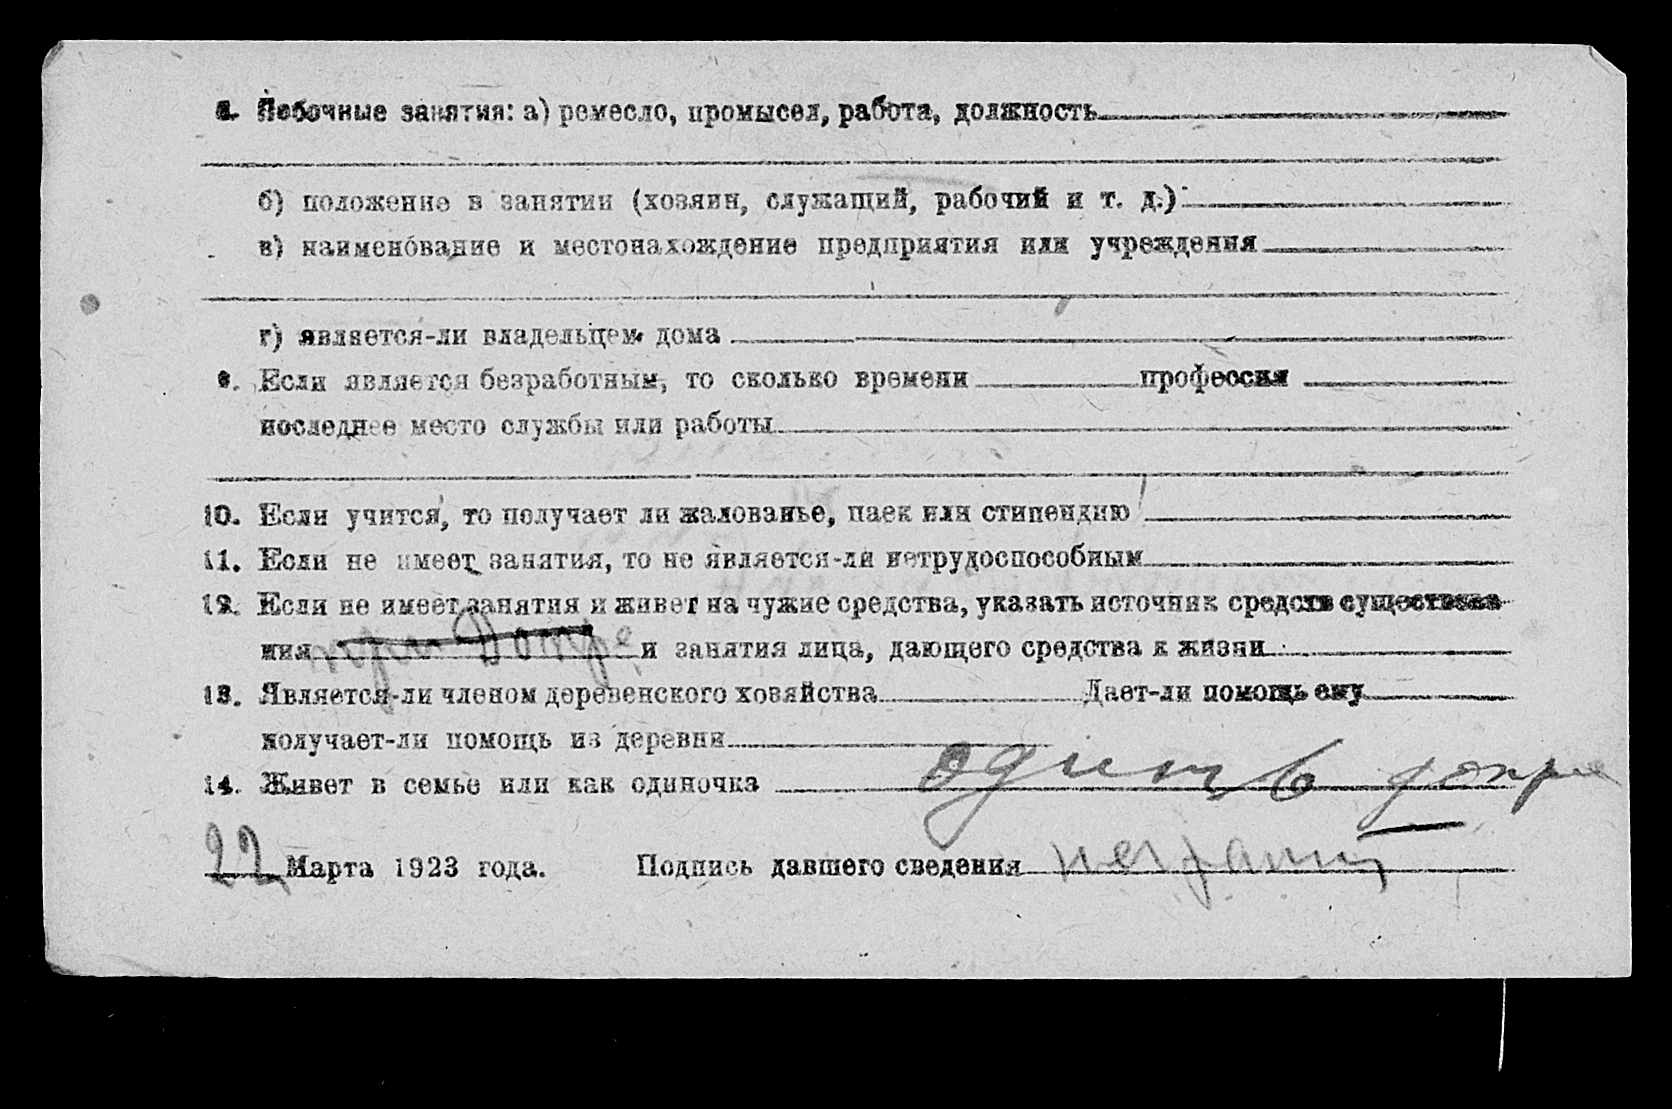 8. Побочные занятия: а) ремесло, промысел, работа, должность
б) положение в занятии (хозяин, служащий, рабочий и т. д.)
в) наименование и местонахождение предприятия или учреждения
г) является-ли владельцем дома
9. Если является безработным, то сколько времени профессия
последнее место службы или работы
10. Если учится, то получает ли жалованье, паек или стипендию
11. Если не имеет занятия, то не является-ли нетрудоспособным
12. Если не имеет занятия и живет на чужие средства, указать источник средств существова-
ния при Допре и занятия лица, дающего средства к жизни
13. Является-ли членом деревенского хозяйства Дает-ли помощь ему
получает-ли помощь из деревни
14. Живет в семье или как одиночка один в допре
22 Марта 1923 года. Подпись давшего сведения